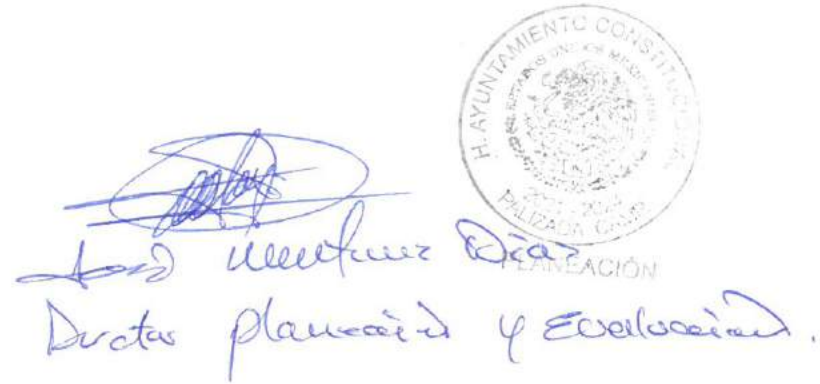 H. AYUNTAMIENTO CONSTITUCIONAL
ESTADOS UNIDOS MEXICANOS
PALIZADA, CAMP.
PLANEACIÓN
José Díaz
Director planeación y Evaluación.